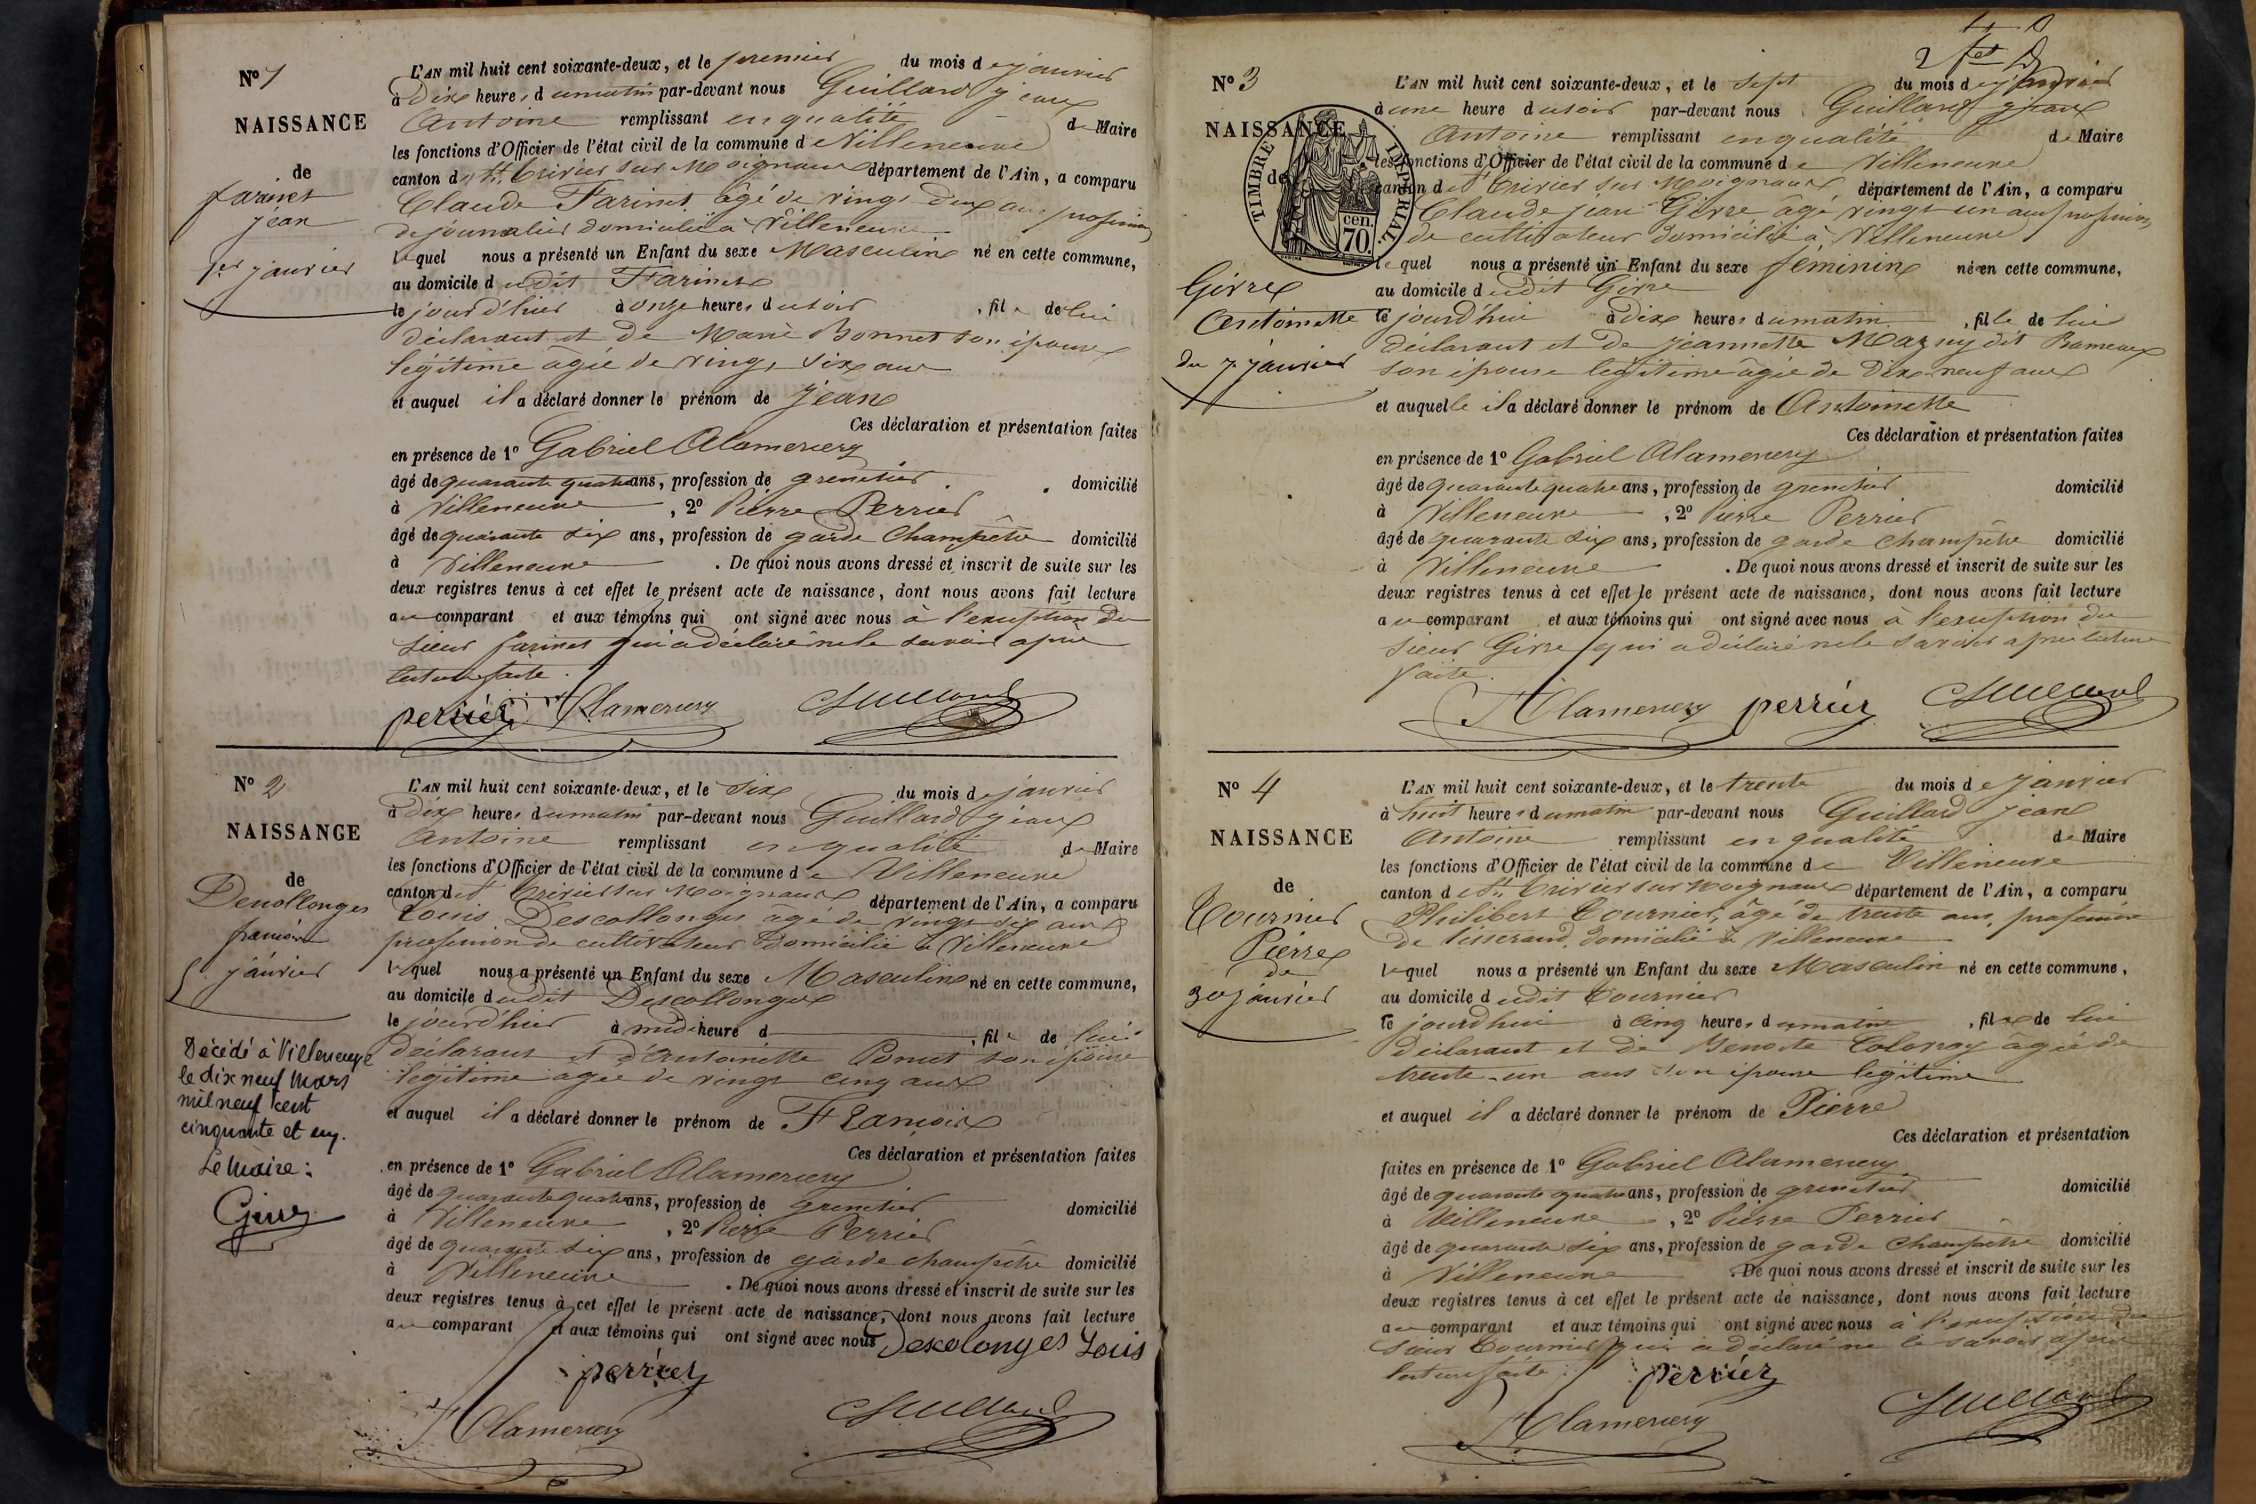 N° 1
NAISSANCE
de
farinet
jean
1er janvier
L'AN mil huit cent soixante-deux, et le premier du mois de janvier
à Dix heures du matin par-devant nous Guillard jean
Antoine remplissant en qualité de Maire
les fonctions d'Officier de l'état civil de la commune de Villeneuve
canton de St Trivier sur Moignans département de l'Ain, a comparu
Claude Farinet âgé de vingt deux ans profession
de journalier domicilié à Villeneuve
lequel nous a présenté un Enfant du sexe Masculin né en cette commune,
au domicile dudit Farinet
le jour d'hier à onze heures du soir, fils de lui
déclarant et de Marie Bonnet son épouse
légitime âgée de vingt six ans
et auquel il a déclaré donner le prénom de Jean
Ces déclaration et présentation faites
en présence de 1° Gabriel Alamercery
âgé de quarante quatre ans, profession de grenetier domicilié
à Villeneuve, 2° Pierre Perrier
âgé de quarante six ans, profession de garde Champêtre domicilié
à Villeneuve. De quoi nous avons dressé et inscrit de suite sur les
deux registres tenus à cet effet le présent acte de naissance, dont nous avons fait lecture
au comparant et aux témoins qui ont signé avec nous à l'exception du
sieur farinet qui a déclaré ne le savoir après
lecture faite.
perriér Alamercery Guillard
N° 2
NAISSANCE
de
Descollonges
francois
6 janvier
Décédé à Villeneuve
le dix neuf Mars
mil neuf cent
cinquante et un.
Le Maire:
L'AN mil huit cent soixante-deux, et le Six du mois de janvier
à dix heures du matin par-devant nous Guillard jean
Antoine remplissant en qualité de Maire
les fonctions d'Officier de l'état civil de la commune de Villeneuve
canton de St Trivier sur Moignans département de l'Ain, a comparu
Louis Descollonges âgé de vingt six ans
profession de cultivateur domicilié à Villeneuve
lequel nous a présenté un Enfant du sexe Masculin né en cette commune,
au domicile dudit Descollonges
le jourd'hier à midi heure d, fils de lui
déclarant et d'Antoinette Ponut son épouse
légitime âgée de vingt cinq ans
et auquel il a déclaré donner le prénom de Francois
Ces déclaration et présentation faites
en présence de 1° Gabriel Alamercery
âgé de quarante quatre ans, profession de grenetier domicilié
à Villeneuve, 2° Pierre Perrier
âgé de quarante six ans, profession de garde champêtre domicilié
à Villeneuve. De quoi nous avons dressé et inscrit de suite sur les
deux registres tenus à cet effet le présent acte de naissance, dont nous avons fait lecture
au comparant et aux témoins qui ont signé avec nous Descolonges Louis
perriér
Alamercery Guillard
N° 3
NAISSANCE
de
TIMBRE IMPÉRIAL.
cen.
70
Givre
Antoinette
du 7 janvier
L'AN mil huit cent soixante-deux, et le Sept du mois de janvier
à une heure du soir par-devant nous Guillard jean
Antoine remplissant en qualité de Maire
les fonctions d'Officier de l'état civil de la commune de Villeneuve
canton de St Trivier sur Moignans département de l'Ain, a comparu
Claude jean Givre âgé vingt un ans profession
de cultivateur domicilié à Villeneuve
lequel nous a présenté un Enfant du sexe féminin né en cette commune,
au domicile dudit Givre
le jourd'hui à dix heures du matin, fille de lui
déclarant et de jeannette Mazuy dit Rameaux
son épouse légitime âgée de Dix neuf ans
et auquelle il a déclaré donner le prénom de Antoinette
Ces déclaration et présentation faites
en présence de 1° Gabriel Alamercery
âgé de quarante quatre ans, profession de grenetier domicilié
à Villeneuve, 2° Pierre Perrier
âgé de quarante six ans, profession de garde champêtre domicilié
à Villeneuve. De quoi nous avons dressé et inscrit de suite sur les
deux registres tenus à cet effet le présent acte de naissance, dont nous avons fait lecture
au comparant et aux témoins qui ont signé avec nous à l'exception du
sieur Givre qui a déclaré ne le savoir après lecture
faite.
Alamercery perriér Guillard
N° 4
NAISSANCE
de
Tournier
Pierre
de
30 janvier
L'AN mil huit cent soixante-deux, et le trente du mois de janvier
à huit heures du matin par-devant nous Guillard jean
Antoine remplissant en qualité de Maire
les fonctions d'Officier de l'état civil de la commune de Villeneuve
canton de St Trivier sur Moignans département de l'Ain, a comparu
Philibert Tournier, âgé de trente ans, profession
de tisserand, domicilié à Villeneuve
lequel nous a présenté un Enfant du sexe Masculin né en cette commune,
au domicile dudit Tournier
le jourd'hui à cinq heures du matin, fils de lui
déclarant et de Benoite âgée de
trente-un ans son épouse légitime
et auquel il a déclaré donner le prénom de Pierre
Ces déclaration et présentation
faites en présence de 1° Gabriel Alamercery
âgé de quarante quatre ans, profession de grenetier domicilié
à Villeneuve, 2° Pierre Perrier
âgé de quarante six ans, profession de garde Champêtre domicilié
à Villeneuve. De quoi nous avons dressé et inscrit de suite sur les
deux registres tenus à cet effet le présent acte de naissance, dont nous avons fait lecture
au comparant et aux témoins qui ont signé avec nous à l'exception du
sieur Tournier qui a déclaré ne le savoir après
lecture faite.
perriér
Alamercery Guillard